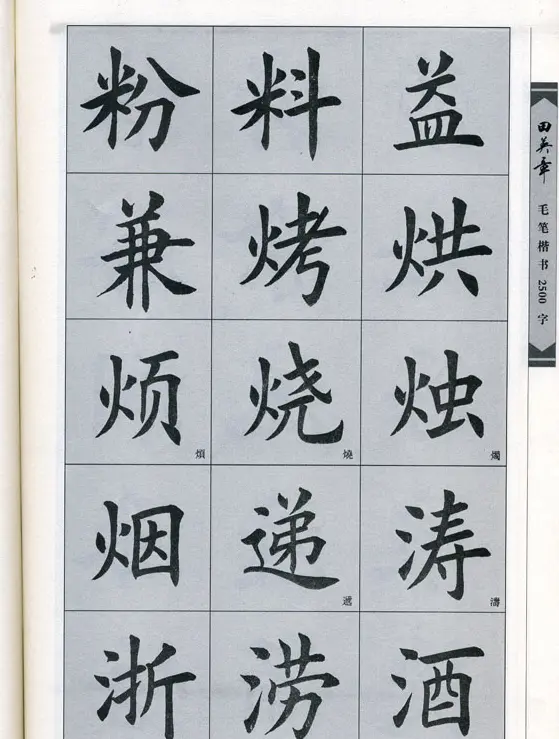 粉 料 益
兼 烤 烘
烦 烧 烛
煩 燒 燭
烟 递 涛
遞 濤
浙 涝 酒
田英章
毛笔楷书2500字